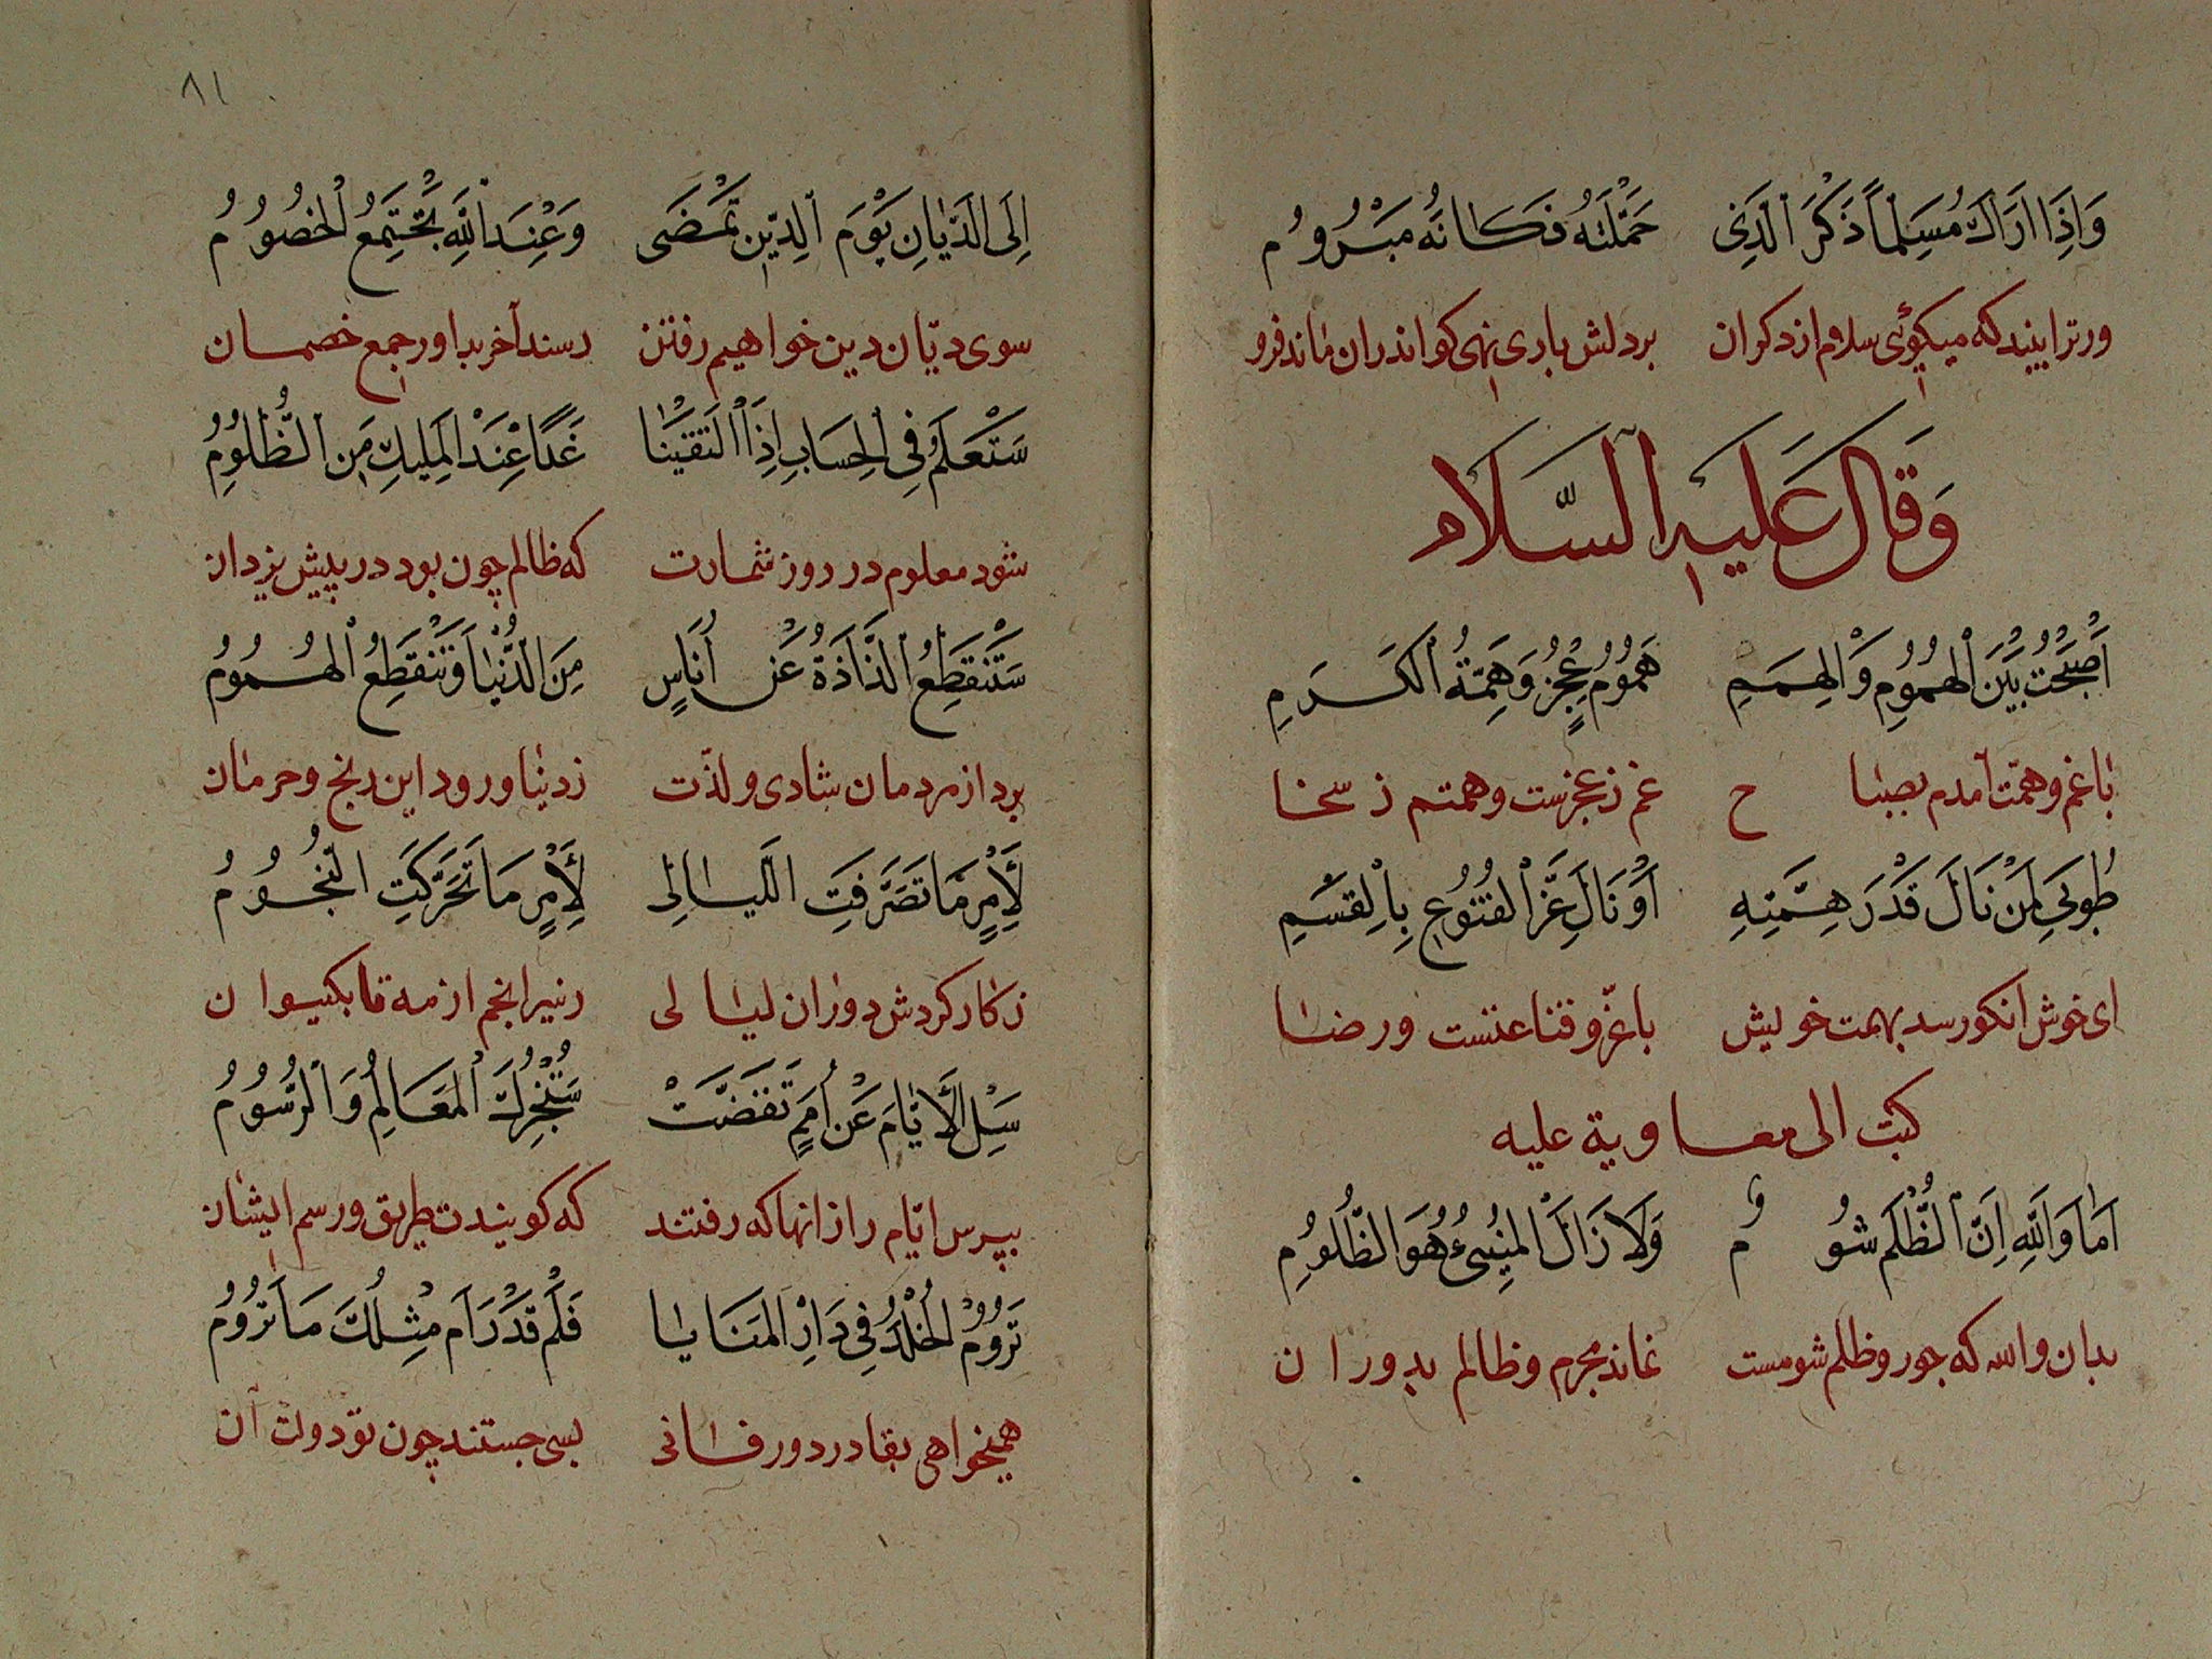 وَاِذَا اَرَاكَ مُسَلِّماً ذَكَرَ الَّذِى حَمَّلْتَهُ فَكَانَّهُ مَبْرُومُ
ورترا بیند که میکوئی سلام از دکران بر دلش باری نهی کو اندران ماند فرو
وَقَالَ عَلَيْهِ السَّلَام
اَصْبَحْتُ بَيْنَ الْهُمُومِ وَالْهِمَمِ هُمُومُ عَجْزٍ وَهِمَّةُ الْكَرَمِ
با غم و همّت آمدم بصبا ح غم ز عجزست و همتم ز سخا
طُوبَى لِمَنْ نَالَ قَدْرَ هِمَّتِهِ اَوْ نَالَ عَزَّ الْقُنُوعِ بِالْقِسَمِ
ای خوش انکو رسد بهمت خویش با عزّ و قناعتست و رضا
كتبت الى معاوية عليه
اَمَا وَاللّٰهِ اِنَّ الظُّلْمَ شُو مُ وَلَا زَالَ الْمُسِىءُ هُوَ الظَّلُومِ
بدان والله که جور و ظلم شومست نماند مجرم و ظالم بدوران
٨١
اِلَى الدَّيَّانِ يَوْمَ الدِّينِ تَمْضَى وَعِنْدَ اللّٰهِ تَجْتَمِعُ الْخُصُومُ
سوی دیّان دین خواهیم رفتن رسند آخر بداور جمع خصمان
سَتَعْلَمُ فِى الْحِسَابِ اِذَا الْتَقَيْنَا غَدًا عِنْدَ الْمَلِيكِ مَنِ الظَّلُومُ
شود معلوم در روز شمارت که ظالم چون بود در پیش یزدان
سَتَنْقَطِعُ الَّذَاذَةُ عَنْ اُنَاسٍ مِنَ الدُّنْيَا وَتَنْقَطِعُ الْهُمُومُ
برد از مردمان شادی و لذّت ز دنیا و رود این رنج و حرمان
لِأَمْرٍ مَا تَصَرَّفَتِ اللَّيَالِى لِأَمْرٍ مَا تَحَرَّكَتِ النُّجُومُ
ز کار کردش دوران لیالی انجم از مه تا بکیوان
سَلِ الْأَيَّامَ عَنْ أُمَمٍ تَقَضَّتْ سَتُخْبِرُكَ الْمَعَالِمُ وَالرُّسُومُ
بپرس ایّام را زانها که رفتند که کویندت طریق و رسم ایشان
تَرُومُ الْخُلْدَ فِى دَارِ الْمَنَايَا فَلَمْ قَدْ رَامَ مِثْلُكَ مَا تَرُومُ
همیخواهی بقا در دور فانی بسی جستند چون تو دولت آن